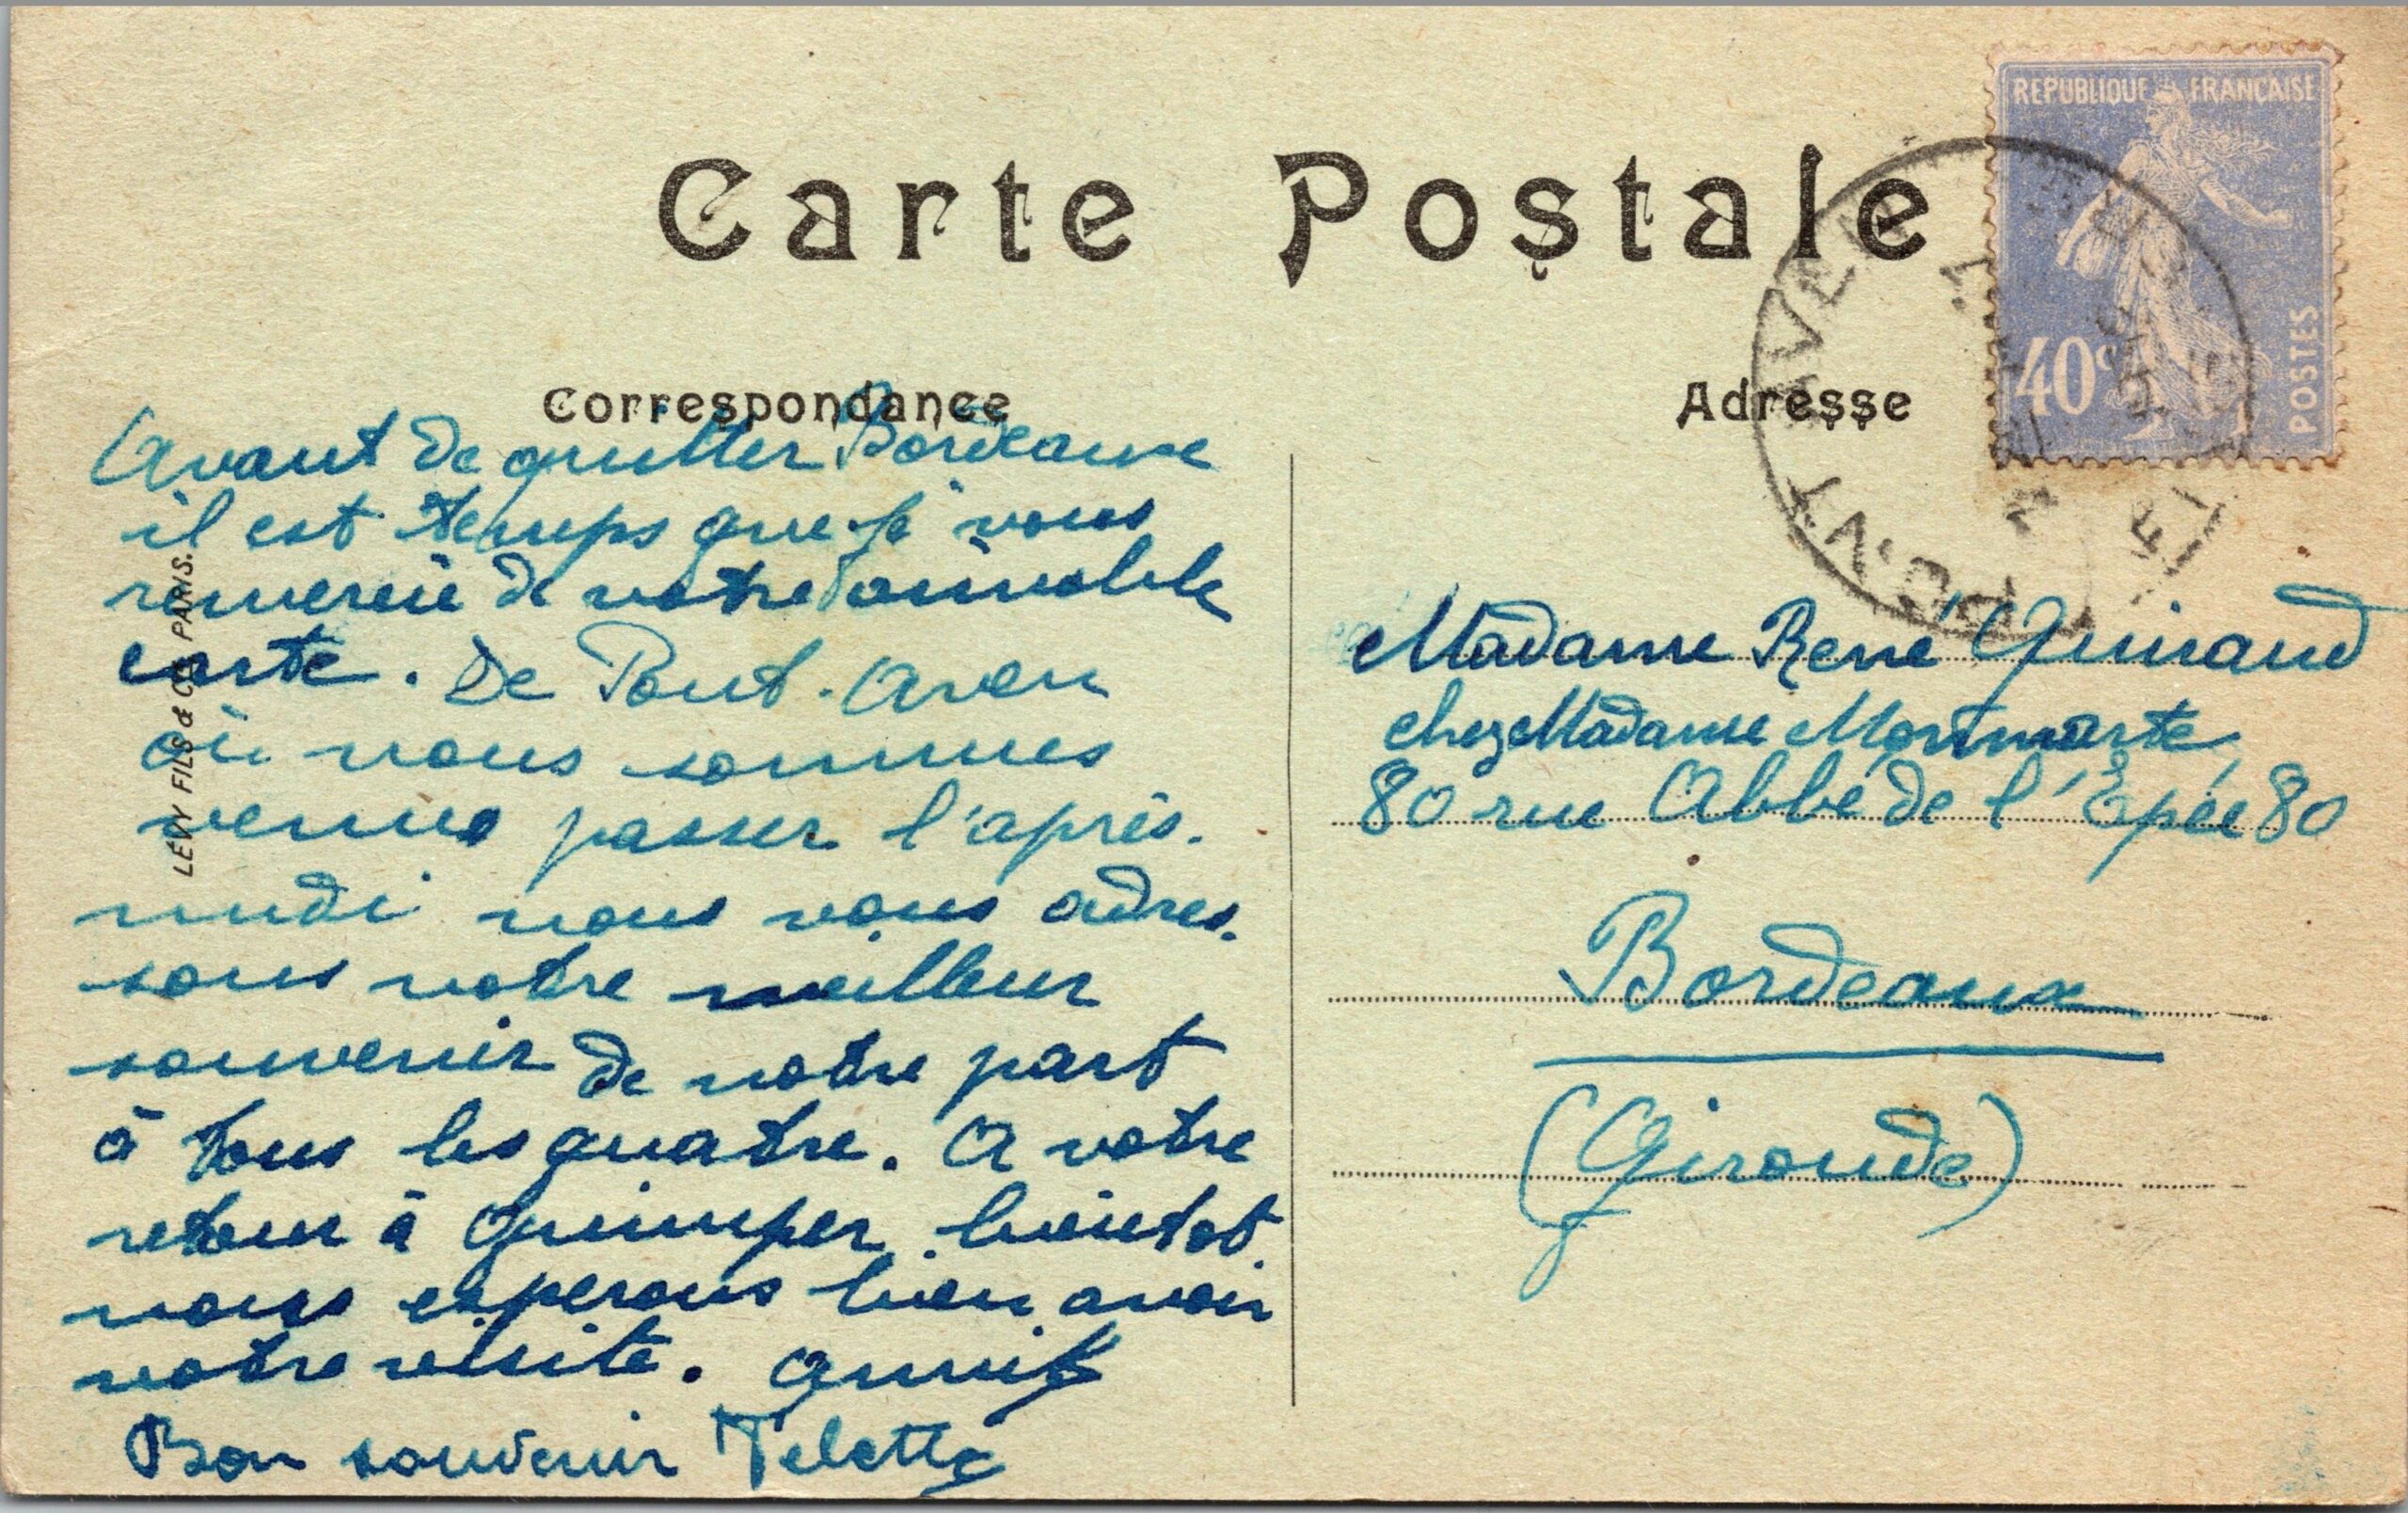 Carte Postale
REPUBLIQUE FRANÇAISE
40c
POSTES
PONT-AVEN
Correspondance
Adresse
Avant de quitter Bordeaux
il est temps que je vous
remercie de votre aimable
carte. De Pont-Aven
où nous sommes
venus passer l'après-
midi nous vous adres-
sons notre meilleur
souvenir de notre part
à tous les quatre. A votre
retour à Quimper bientot
nous esperons bien avoir
votre visite.
Bon souvenir
LEVY FILS & Cie PARIS.
Madame René Guiraud
chez Madame Montmarte
80 rue Abbé de l'Epée 80
Bordeaux
(Gironde)